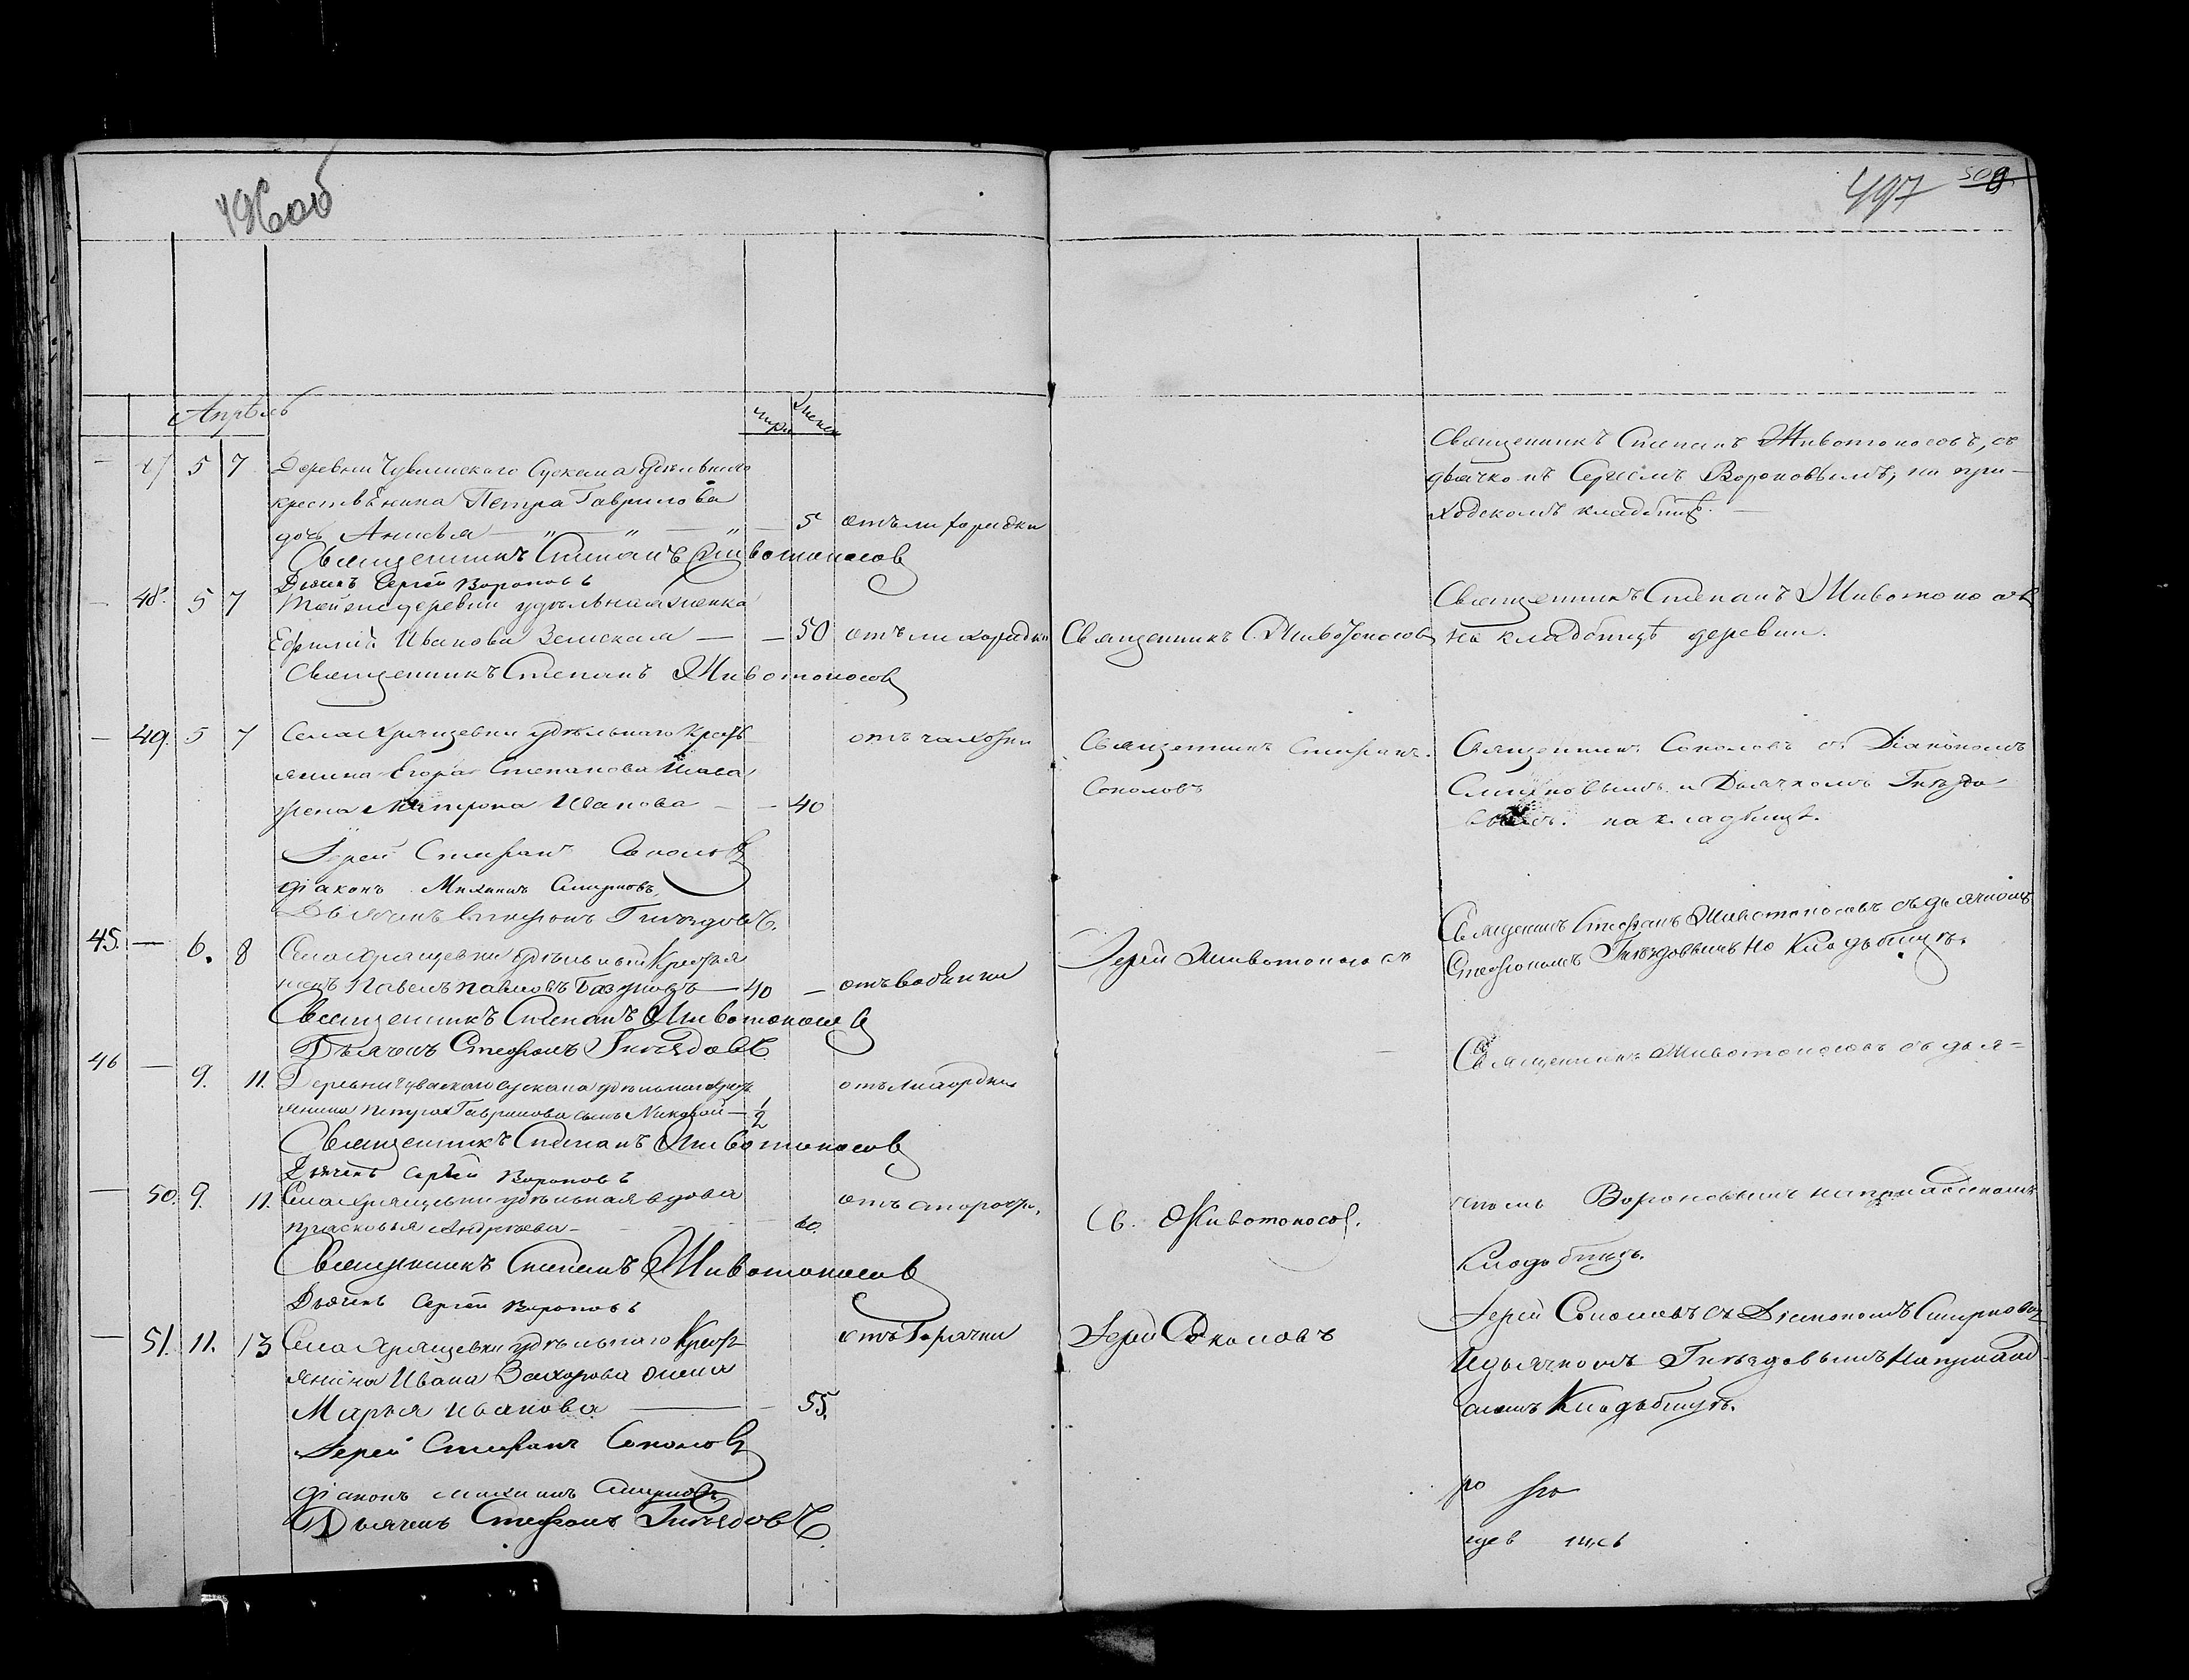 496об
497 500
Апрѣль
мужс. женск
— 47 5 7 Деревни Чувашскаго Сускана удѣльнаго
крестьянина Петра Гаврилова
дочь Анисья — „ — „ — „ — 5 отъ лихорадки
Священникъ Степанъ Животоносов
Дьячекъ Сергѣй Вороновъ
Священникъ Степанъ Животоносовъ, съ
дьячкомъ Сергѣемъ Вороновымъ, на при-
ходскомъ кладбищѣ. —
— 48. 5 7 Той же деревни удѣльная женка
Ефимія Иванова Земскова — — 50 отъ лихорадки
Священникъ Степанъ Животоносов
Священникъ С. Животоносов
Священникъ Степанъ Животоносовъ
на кладбищѣ деревни.
— 49. 5 7 Села Хрящевки удѣльнаго крестъ
янина Егора Степанова
жена Матрона Иванова — — 40
отъ чахотки
Іерей Стефанъ Соколов
діаконъ Михаилъ Смирновъ
Дьячекъ Стефанъ Гнѣздовъ.
Священникъ Стефанъ
Соколовъ
Священникъ Соколовъ съ Діакономъ
Смирновымъ и Дьячкомъ Гнѣздо-
вымъ. на кладбищѣ.
45. — 6. 8 Села Хрящевки удѣльный Крестья
нинъ Павелъ Павловъ — 40 — отъ водянки
Священникъ Степанъ Животоносов
Дьячекъ Стефанъ Гнѣздовъ
Іерей Животоносовъ
Священникъ Стефанъ Животоносовъ съ дьячкомъ
Стефаномъ Гнѣздовымъ на Кладьбищѣ.
46 — 9. 11. Деревни Чувашскаго Сускана удѣльнаго крестъ
янина Петра Гаврилова сынъ Николай — 1/2
отъ лихорадки
Священникъ Степанъ Животоносов
Дьячекъ Сергѣй Вороновъ
Священникъ Животоносовъ съ дья=
чкомъ Вороновымъ на приходскомъ
Кладьбищѣ.
— 50. 9. 11. Села Хрящевки удѣльная вдова
Прасковья Андреева — 60.
отъ старости,
Священникъ Степанъ Животоносов
Дьячекъ Сергѣй Вороновъ
Св. Животоносов.
— 51. 11. 13 Села Хрящевки удѣльнаго Крестъ
янина Ивана Захарова жена
Марья Иванова — — 55.
отъ Горячки
Іерей Стефанъ Соколов
діаконъ Михаилъ Смирновъ
Дьячекъ Стефанъ Гнѣздовъ.
Іерей Соколовъ
Іерей Соколовъ съ Діакономъ Смирновым
И дьячкомъ Гнѣздовымъ На приход
скомъ Кладьбищѣ.